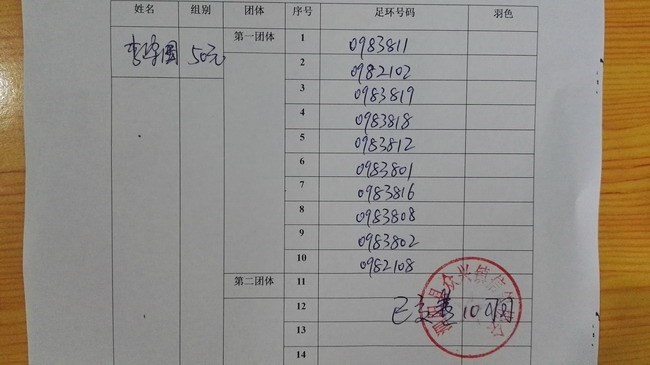 姓名 组别 团体 序号 足环号码 羽色
第一团体 1 0983811
50元
2 0982102
3 0983819
4 0983818
5 0983812
6 0983801
7 0983816
8 0983808
9 0983802
10 0982108
第二团体 11
12
13
14